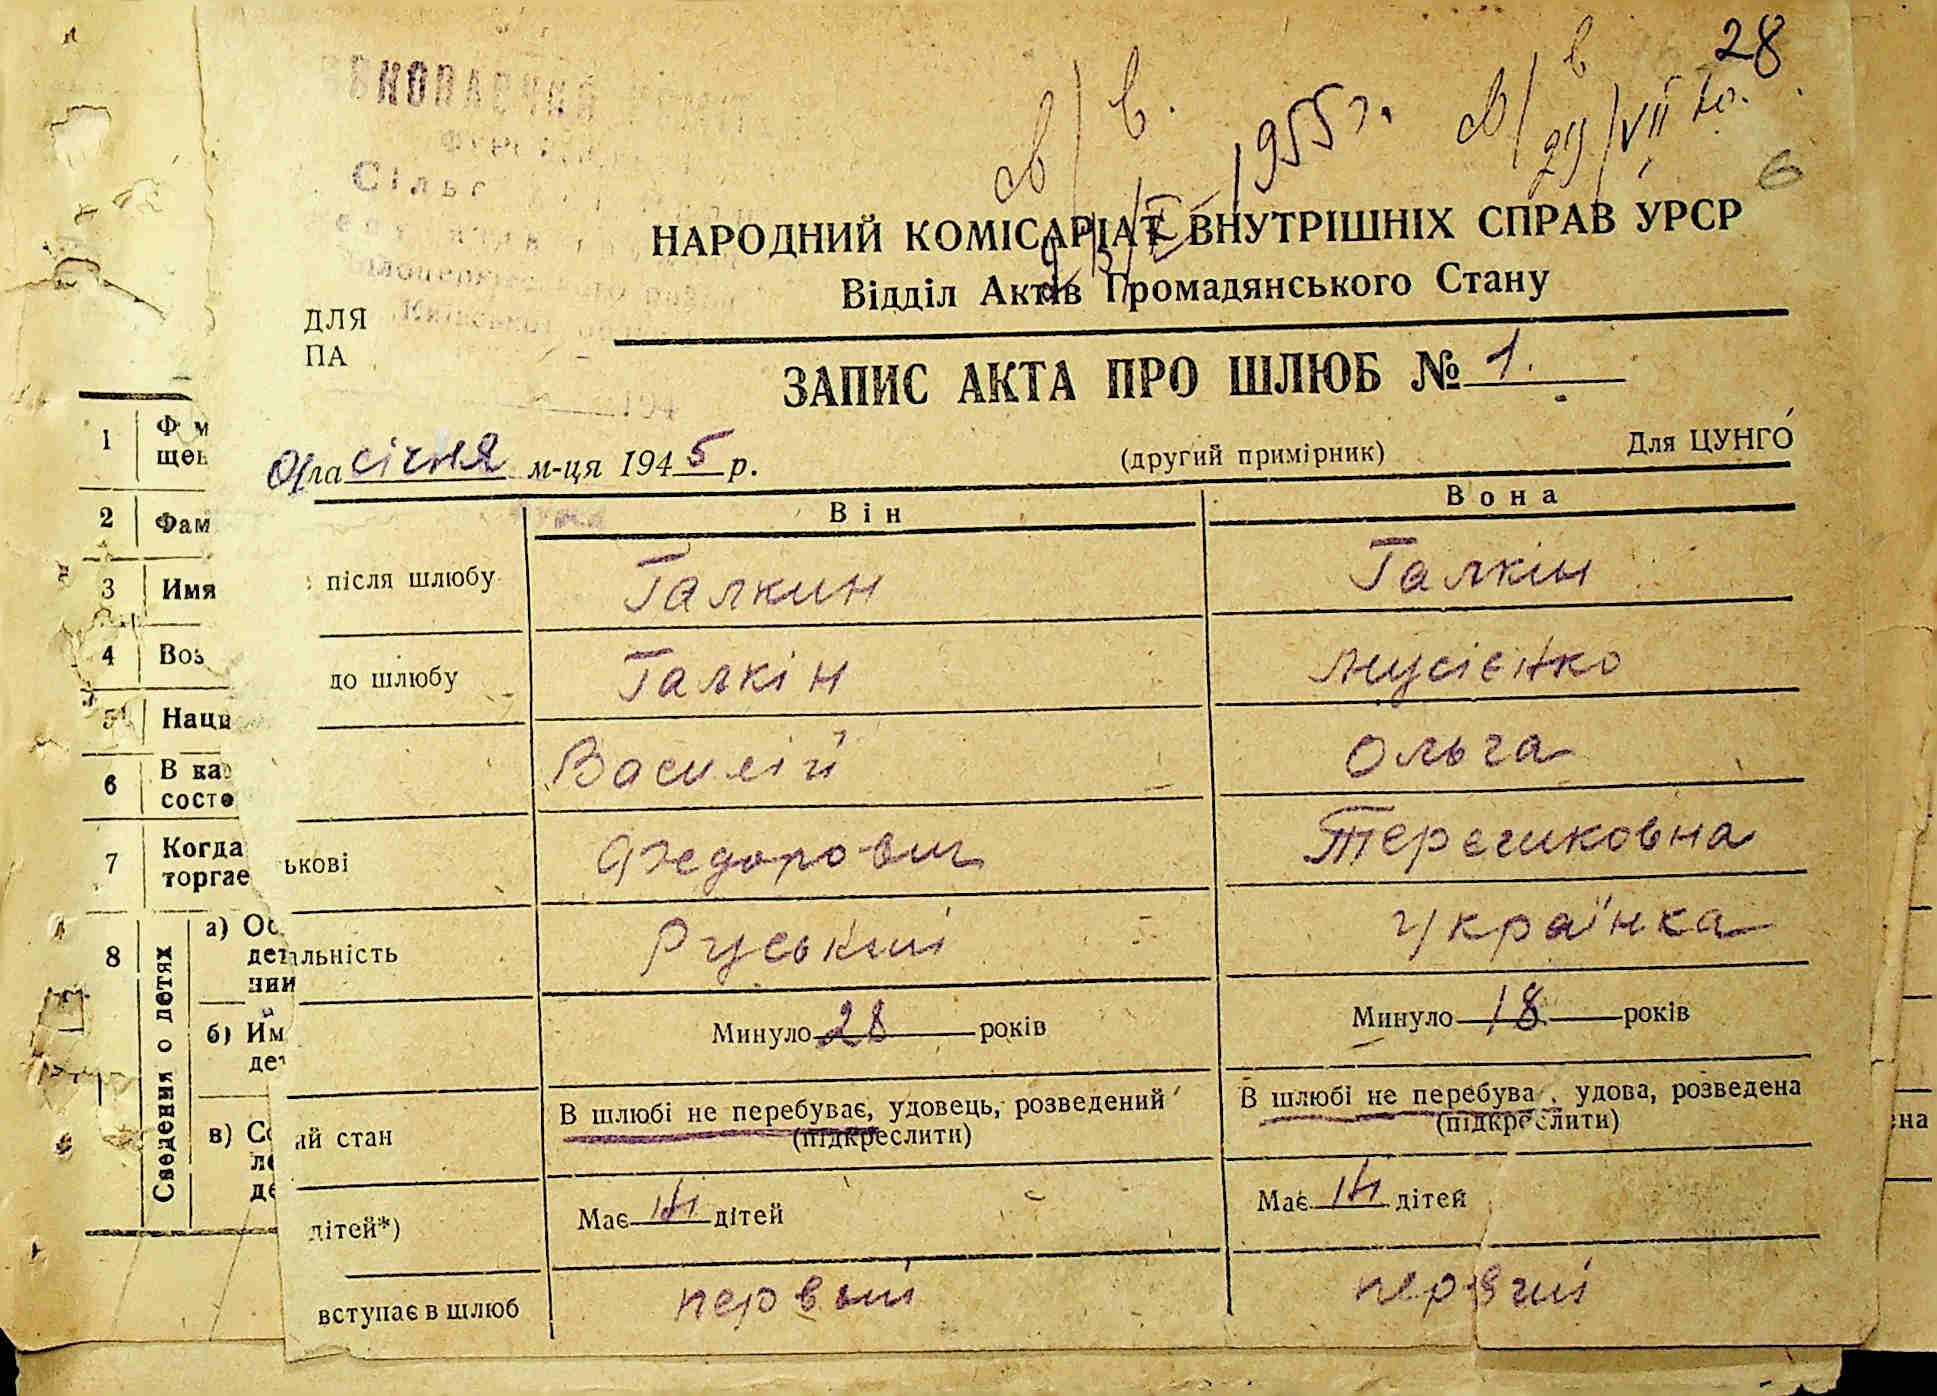 28
6
1955 г.
НАРОДНИЙ КОМІСАРІАТ ВНУТРІШНІХ СПРАВ УРСР
Відділ Актів Громадянського Стану
ДЛЯ
ПА
ЗАПИС АКТА ПРО ШЛЮБ № 1.
січня м-ця 1945 р. (другий примірник) Для ЦУНГО
Він Вона
після шлюбу Галкин Галкін
до шлюбу Галкін Мусієнко
Василій Ольга
ькові Федорович Терешковна
альність Руський Українка
Минуло 28 років Минуло 18 років
В шлюбі не перебуває, удовець, розведений В шлюбі не перебува , удова, розведена
ий стан (підкреслити) (підкреслити)
дітей*) Має дітей Має дітей
вступає в шлюб первый первий
1 Ф м
щен
2 Фам
3 Имя
4 Воз
5 Наци
6 В ка
состо
7 Когда
торгае
8 Сведения о детях
а) Ос
дет
нии
б) Им
дет
в) Со
ле
де
на